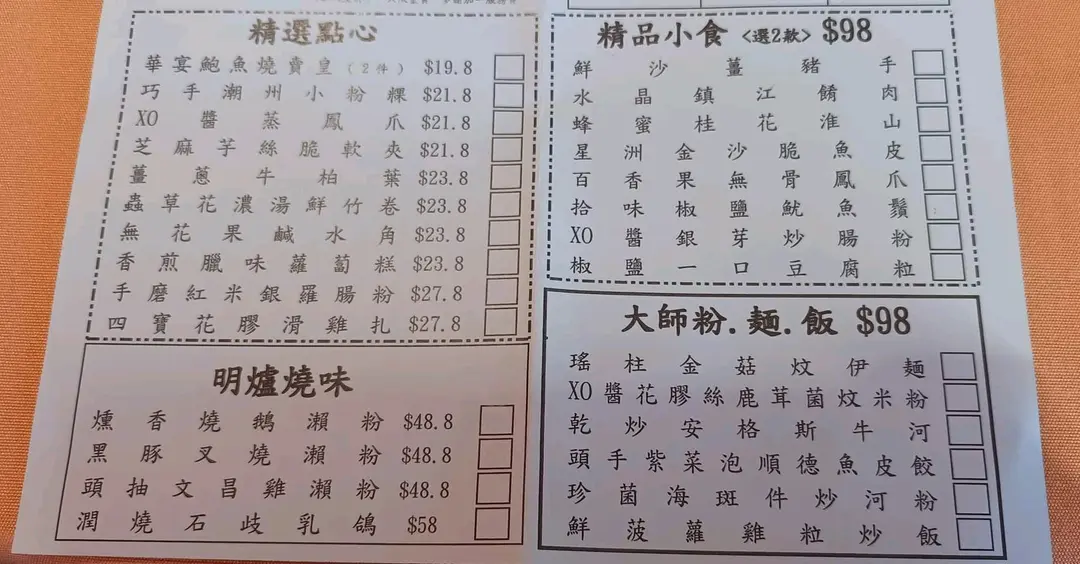 精選點心
華宴鮑魚燒賣皇（2件） $19.8
巧手潮州小粉粿 $21.8
XO醬蒸鳳爪 $21.8
芝麻芋絲脆軟夾 $21.8
薑蔥牛柏葉 $23.8
蟲草花濃湯鮮竹卷 $23.8
無花果鹹水角 $23.8
香煎臘味蘿蔔糕 $23.8
手磨紅米銀羅腸粉 $27.8
四寶花膠滑雞扎 $27.8
明爐燒味
燻香燒鵝瀨粉 $48.8
黑豚叉燒瀨粉 $48.8
頭抽文昌雞瀨粉 $48.8
潤燒石歧乳鴿 $58
精品小食 <選2款> $98
鮮沙薑豬手
水晶鎮江餚肉
蜂蜜桂花淮山
星洲金沙脆魚皮
百香果無骨鳳爪
拾味椒鹽魷魚鬚
XO醬銀芽炒腸粉
椒鹽一口豆腐粒
大師粉.麵.飯 $98
瑤柱金菇炆伊麵
XO醬花膠絲鹿茸菌炆米粉
乾炒安格斯牛河
頭手紫菜泡順德魚皮餃
珍菌海斑件炒河粉
鮮菠蘿雞粒炒飯